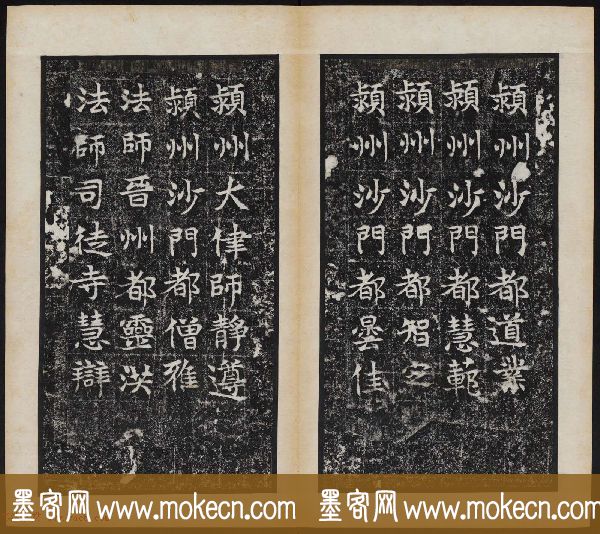 潁州沙門都道業
潁州沙門都慧範
潁州沙門都智
潁州沙門都曇佳
潁州大律師靜遵
潁州沙門都僧雅
法師晉州都靈洪
法師司徒寺慧辯
墨客网 www.mokecn.com 墨客网 www.mokecn.com